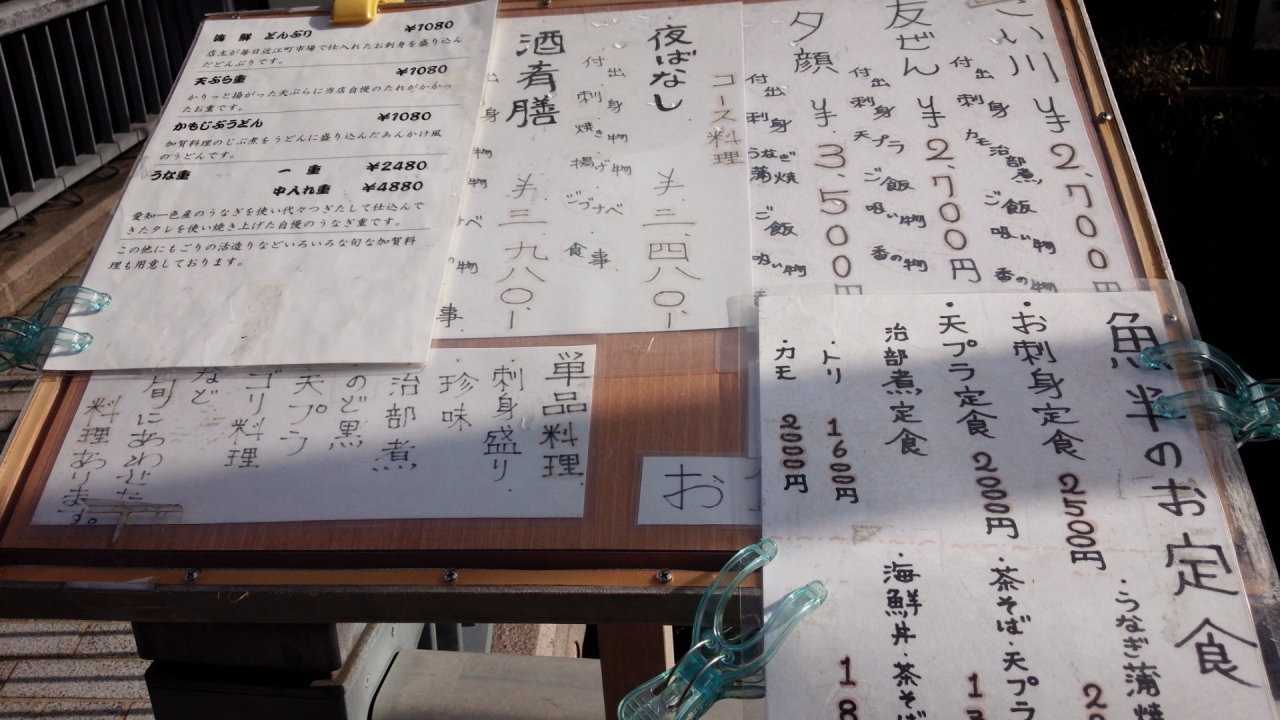 海鮮 どんぶり ¥1080
店主が毎日近江町市場で仕入れたお刺身を盛り込ん
だどんぶりです。
天ぷら重 ¥1080
かりっと揚がった天ぷらに当店自慢のたれがかかっ
たお重です。
かもじぶうどん ¥1080
加賀料理のじぶ煮をうどんに盛り込んだあんかけ風
のうどんです。
うな重 一重 ¥2480
中入れ重 ¥4880
愛知一色産のうなぎを使い代々つぎたして仕込んで
きたタレを使い焼き上げた自慢のうなぎ重です。
この他にもごりの活造りなどいろいろな旬な加賀料
理も用意しております。
い川 ¥2,700円
付出
刺身
カモ治部煮
ご飯
吸い物
香の物
友ぜん ¥2,700円
付出
刺身
天プラ
ご飯
吸い物
香の物
夕顔 ¥3,500円
付出
刺身
うなぎ蒲焼
ご飯
吸い物
コース料理
夜ばなし ¥三、四八〇.-
付出
刺身
焼き物
揚げ物
ジブナベ
食事
酒肴膳 ¥三、九八〇.-
出
身
物
物
ベ
物
事
単品料理
・刺身盛り
・珍味
治部煮
のど黒
天プラ
ゴリ料理
など
旬にあわせた
料理あります。
お
魚半のお定食
・お刺身定食 2500円
・天プラ定食 2000円
治部煮定食
・トリ 1600円
・カモ 2000円
・うなぎ蒲焼
・茶そば・天プラ
・海鮮丼・茶そば